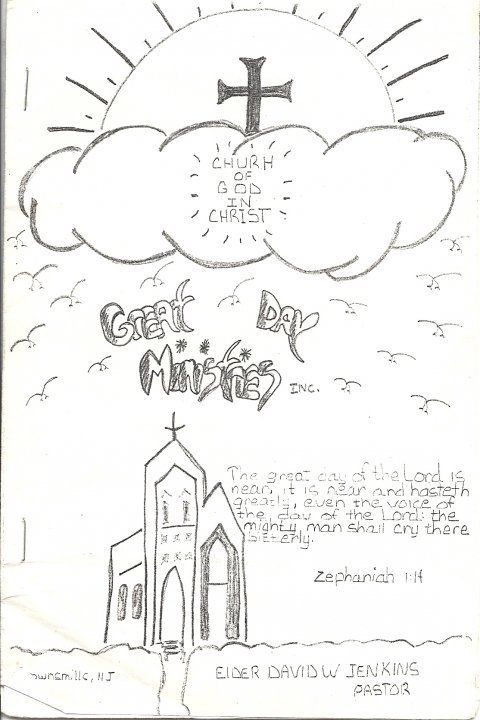 CHURH
OF
GOD
IN
CHRIST
GREAT DAY
MINISTRIES INC.
The great day of the Lord is
near, it is near and hasteth
greatly, even the voice of
the day of the Lord: the
mighty, man shall cry there
bitterly.
Zephaniah 1:14
NJ
ElDER DAVID W JENKINS
PASTOR